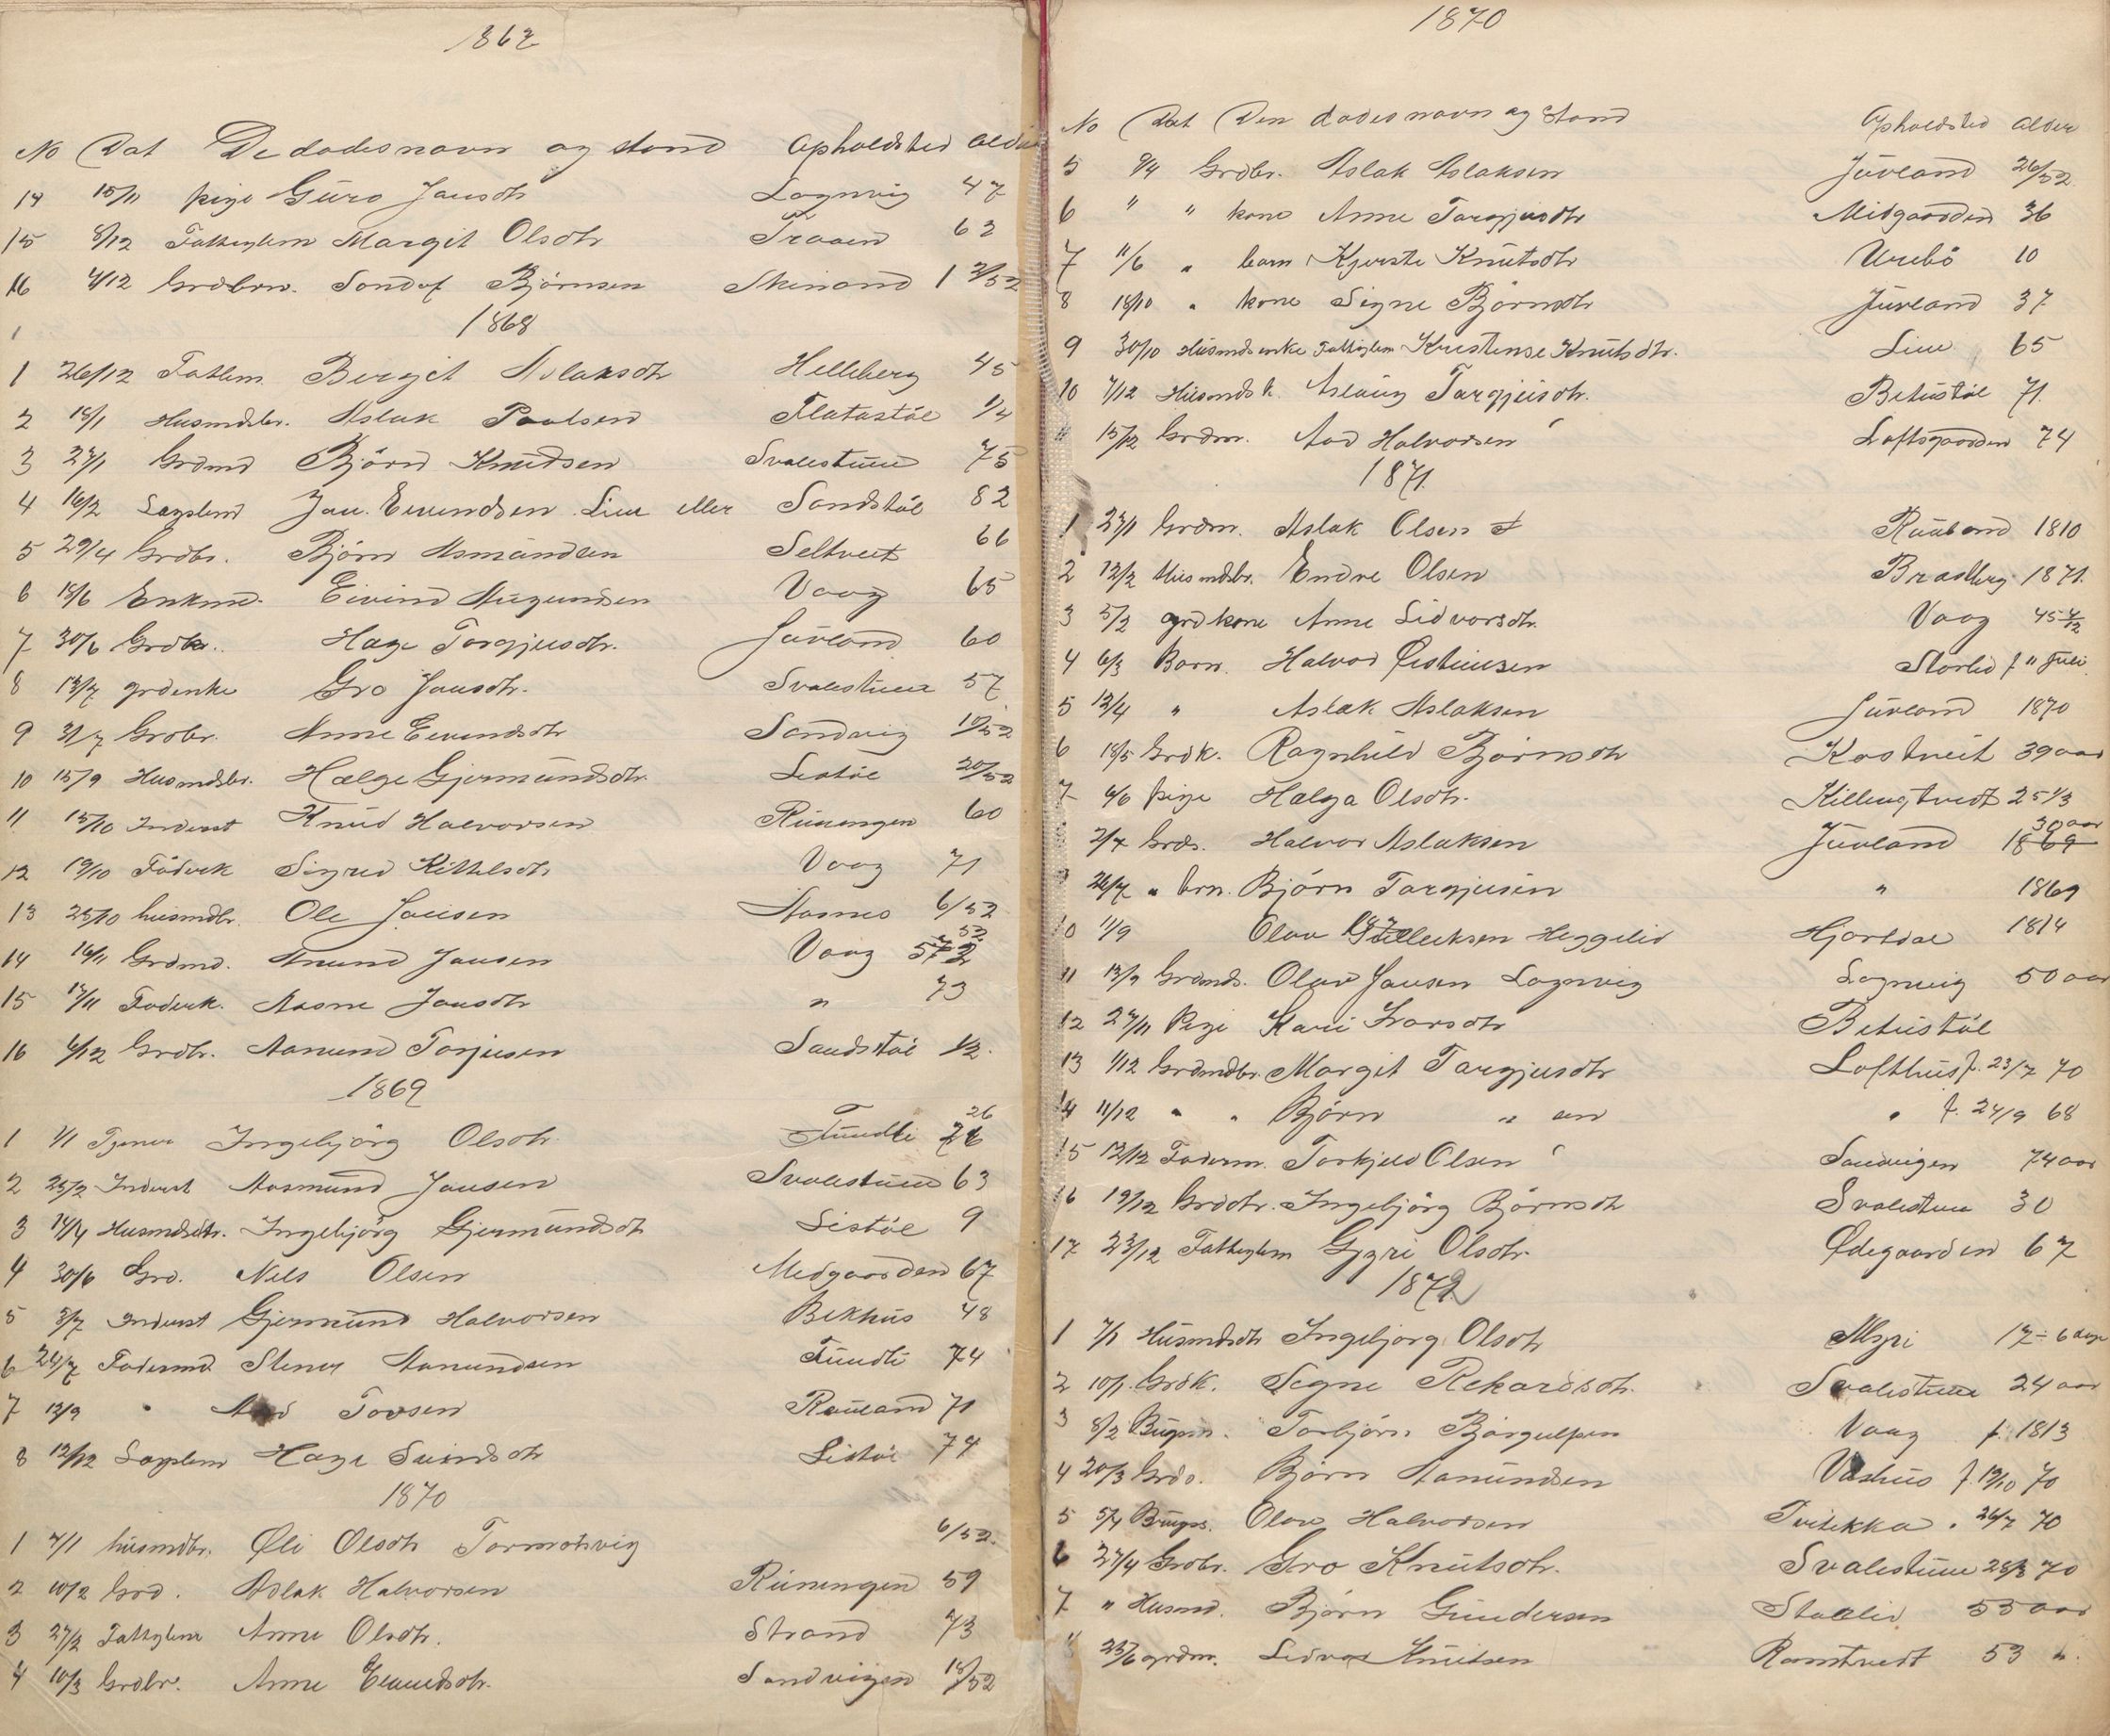 1867
No Dat De dødes navn og stand Opholdsted alder
14 15/11 pige Guro Jansdtr Lognvig 47
15 8/12 Fattiglem Margit Olsdtr Traaen 63
16 4/12 Grdbrn. Sondof Björnsen Skinand 1 2/52
1868
1 26/12 Fatlem. Bergit Aslaksdtr Helleberg 45
2 18/1 Husmdsbr. Aslak Paalsen Flatastöl 1/4
3 27/1 Grdmd Björn Knudsen Svalestuen 75
4 16/2 Lægslemd Jan. Eivendsen Lien eller Sandstöl 82
5 29/4 Grdbr. Björn Asmundsen Seltveit 66
6 18/6 Enkmd. Eivind Augundsen Vaag 65
7 30/6 Grdk. Hæge Torgjusdtr. Juvland 60
8 13/7 grdenke Gro Jansdtr. Svalestuen 57
9 31/7 Grdbr. Anne Eivendsdtr Sandvig 10/52
10 15/9 Husmdsbr. Hælge Gjermundsdtr. Listöl 20/52
11 15/10 Inderst Knud Halvorsen Runingen 60
12 19/10 Födrk Sigrid Kittelsdtr Vaag 71
13 25/10 husmdbr. Ole Jansen Aasnes 6/52
14 16/11 Grdmd. Anund Jansen Vaag 52
15 17/11 Foderk. Aasne Jansdtr " 73
16 4/12 Grdbr. Aanund Torjusen Sandstöl 1/2.
1869
1 1/1 Tjener Ingebjörg Olsdtr. Fundli 26
2 25/2 Inderst Aasmund Jansen Svalestuen 63
3 14/4 Husmdsdtr. Ingebjörg Gjermundsdtr Listöl 9
4 30/6 Grd. Nels Olsen Medgaarden 67
5 3/7 Inderst Gjermund Halvorsen Bekhus 48
6 24/7 Fodermd. Stener Aanundsen Fundli 74
7 12/9 " Aad Tovsen Rauland 71
8 12/12 Lægslem Hæge Svindsdtr Listöl 74
1870
1 4/1 husmdbr. Øli Olsdtr Tormotsvig 6/52.
2 10/2 Grd. Aslak Halvorsen Runingen 59
3 27/2 Fattiglem Anne Olsdtr. Strand 73
4 10/3 Grdbr. Anne Eivendsdtr. Sandvigen 18/52
1870
No Dat Den dødes navn og stand Opholdsted alder
5 9/4 Grdbr. Aslak Aslaksen Juvland 26/52
6 " " kone Anne Targjusdtr Midgaarden 36
7 11/6 " barn Kjerste Knutsdtr Urebö 10
8 18/10 " kone Signe Björnsdtr Juvland 37
9 30/10 Husmdsenke Fattiglem Kristense Knutsdtr. Lien 65
10 7/12 Husmds k. Aslaug Targjusdtr. Betustöl 71.
11 15/12 Grdm. Aad Halvorsen Loftsgaarden 74
1871.
1 23/1 Grdm. Aslak Olsen Rauland 1810
2 12/2 Husmdbr. Endre Olsen Bradberg 1871.
3 5/2 grdkone Anne Lidvorsdtr. Vaag 45 4/12
4 6/3 Barn. Halvor Øistensen Storlid f " Juli.
5 12/4 " Aslak Aslaksen Juvland 1870
6 18/5 Grdk. Ragnhild Björnsdtr Kostveit 39 aar
7 4/6 pige Helga Olsdtr. Killingtvedt 25 1/3
2/7 Grds. Halvor Aslaksen Juvland 30 aar 1869
26/7 " brn. Björn Targjusen " 1869
10 11/9 Olav Gulleksen Heggelid Hjartdal 1814
11 13/9 Grdmds. Olav Jansen Lognvig Lognvig 50 aar
12 27/11 Pige Kari Ivarsdtr Betustöl
13 1/12 Grdmdbr. Margit Targjusdtr Lofthus f. 23/7 70
14 11/12 " " Björn " en " f. 24/9 68
15 12/12 Foderm. Torkjeld Olsen Sandvigen 74 aar
16 19/12 Grddtr. Ingebjörg Björnsdtr Svalestuen 30
17 23/12 Fattiglem Gyri Olsdtr. Ødegaarden 67
1872
1 7/1 Husmdsdtr Ingebjorg Olsdtr Myri 17-6 dage
2 10/1. Grdk. Segne Rekardsdtr. Svalestuen 24 aar
3 8/2 Bugsm. Torbjörn Björgulfsen Vaag f. 1813
4 20/3 Grds. Björn Aanundsen Vashus f. 19/10 70
5 5/4 Brugs. Olav Halvorsen Tvitekka " 26/7 70
6 27/4 Grdbr. Gro Knutsdtr. Svalestuen 28/3 70
7 " Husmd. Björn Gundersen Staalid 55 aar
23/6 grdm. Lidvor Knutsen Ramtvedt 53 ".